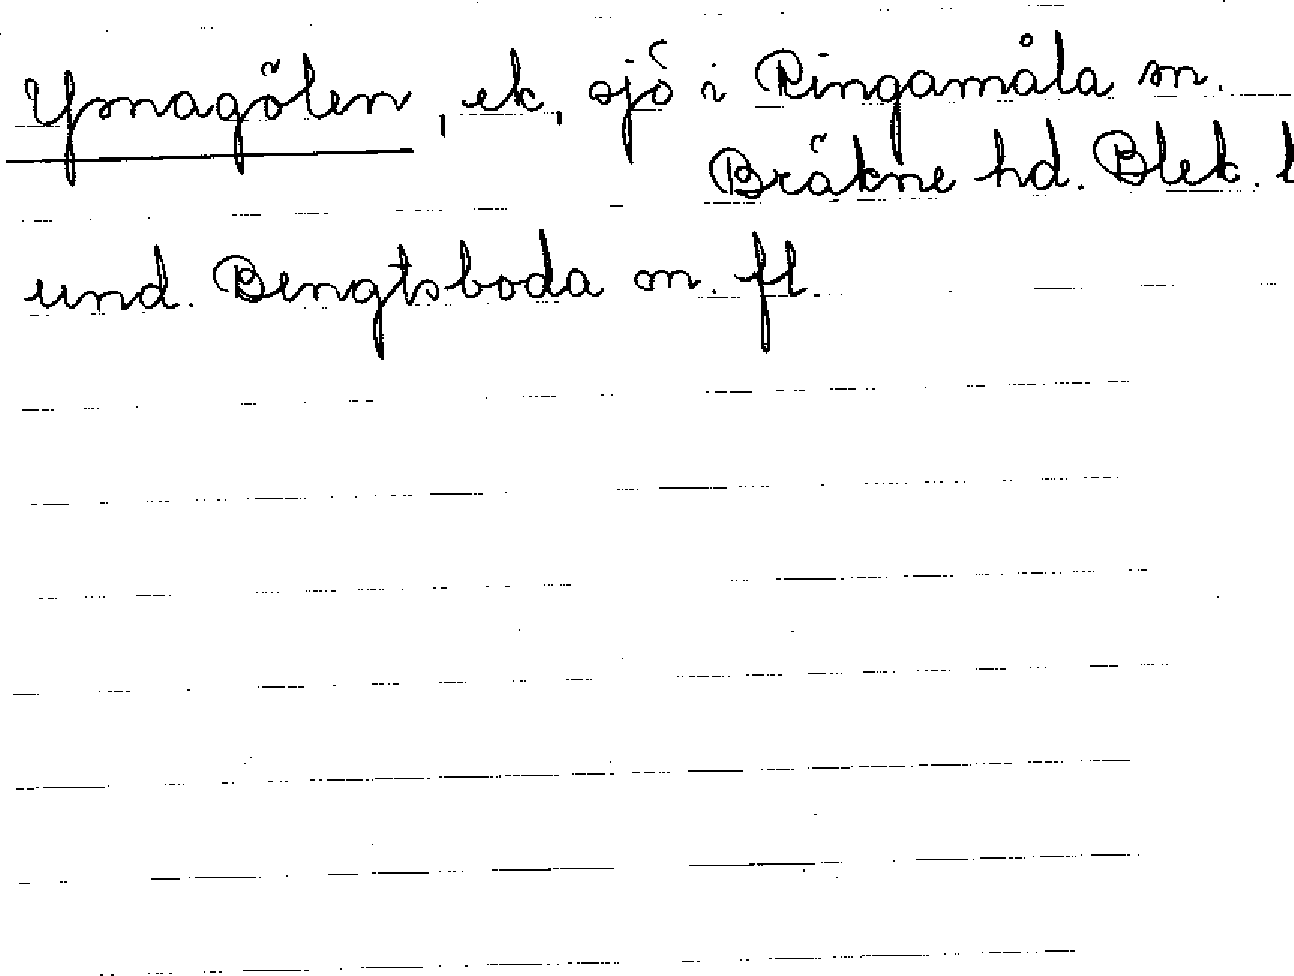 Ysnagölen, ek, sjö i Ringamåla sn.
Bräkne hd. Blek. l
und. Bengtsboda m. fl.